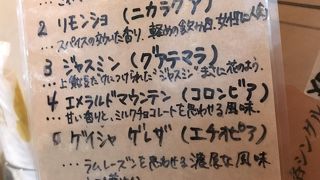 2 リモンショ (ニカラグア)
…スパイスの効いた香り、軽めの飲み口、女性に人気
3 ジャスミン (グアテマラ)
…上質な豆だけにつけられた"ジャスミン"まさに花のよう。
4 エメラルドマウンテン (コロンビア)
…甘い香りと、ミルクチョコレートを思わせる風味
5 ゲイシャ ゲレザ (エチオピア)
…ラムレーズンを思わせる濃厚な風味
シングル